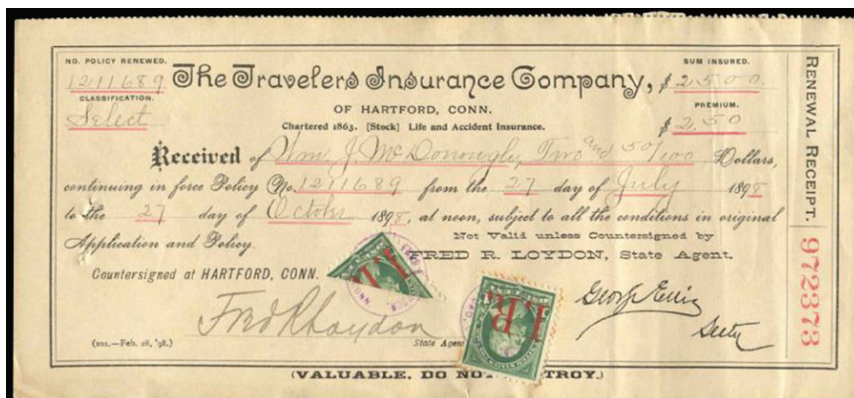 NO. POLICY RENEWED.
1211689
CLASSIFICATION.
Select
The Travelers Insurance Company,
OF HARTFORD, CONN.
Chartered 1863. [Stock] Life and Accident Insurance.
SUM INSURED.
$ 2500.
PREMIUM.
$ 2.50
Received of Wm. J. McDonough, Two and 50/100 Dollars,
continuing in force Policy No. 1211689 from the 27 day of July 1898
to the 27 day of October 1898, at noon, subject to all the conditions in original
Application and Policy.
Not Valid unless Countersigned by
FRED R. LOYDON, State Agent.
Countersigned at HARTFORD, CONN.
Fred R Loydon
State Agen
George Ellis
Secty
(221.—Feb. 28, '98.)
I.R.
I.R.
(VALUABLE. DO NOT TROY.)
RENEWAL RECEIPT.
972373